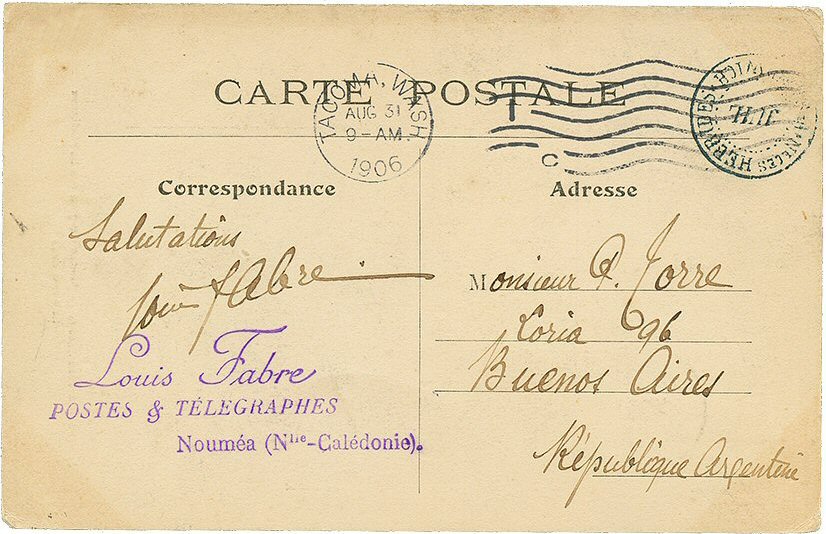 CARTE POSTALE
TACOMA, WASH.
AUG 31
9-AM.
1906
T
C
HEBRIDES
Correspondance
Adresse
Salutations
Louis Fabre
Louis Fabre
POSTES & TÉLEGRAPHES
Nouméa (Nlle-Calédonie).
Monsieur P. Torre
Loria 96
Buenos Aires
République Argentine